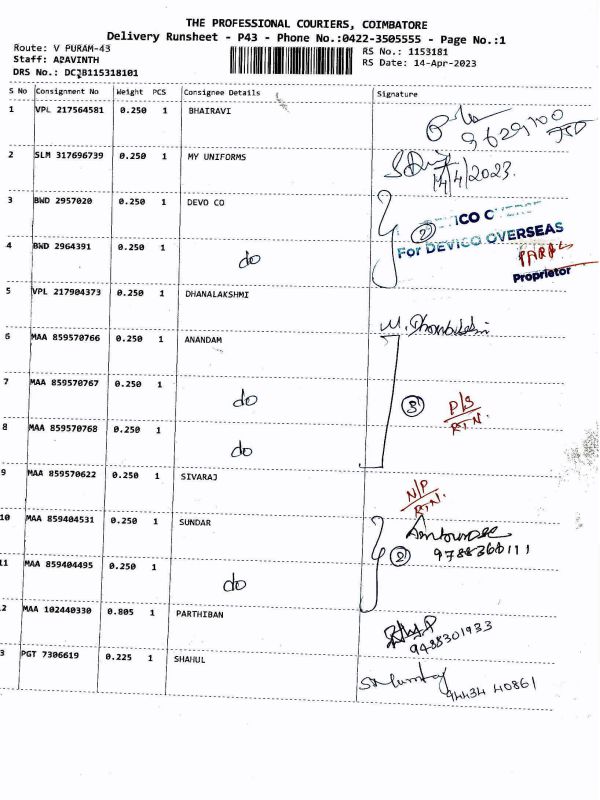 THE PROFESSIONAL COURIERS, COIMBATORE
Delivery Runsheet - P43 - Phone No.:0422-3505555 - Page No.:1
Route: V PURAM-43
RS No.: 1153181
Staff: ARAVINTH
RS Date: 14-Apr-2023
DRS No.: DCJB115318101
S No Consignment No Weight PCS Consignee Details Signature
1 VPL 217564581 0.250 1 BHAIRAVI
2 SLM 317696739 0.250 1 MY UNIFORMS 14/4/2023.
3 BWD 2957020 0.250 1 DEVO CO
2 For DEVICO OVERSEAS
4 BWD 2964391 0.250 1 do
Proprietor
5 VPL 217904373 0.250 1 DHANALAKSHMI
6 MAA 859570766 0.250 1 ANANDAM
7 MAA 859570767 0.250 1 do 3 P/S RTN.
8 MAA 859570768 0.250 1 do
9 MAA 859570622 0.250 1 SIVARAJ N/P RTN.
10 MAA 859404531 0.250 1 SUNDAR
2 9788366111
11 MAA 859404495 0.250 1 do
2 MAA 102440330 0.805 1 PARTHIBAN
9488301933
3 PGT 7306619 0.225 1 SHAHUL
94434 40861